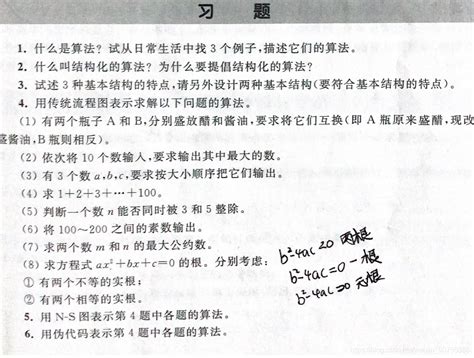 习 题
1. 什么是算法？试从日常生活中找 3 个例子,描述它们的算法。
2. 什么叫结构化的算法？为什么要提倡结构化的算法？
3. 试述 3 种基本结构的特点,请另外设计两种基本结构(要符合基本结构的特点)。
4. 用传统流程图表示求解以下问题的算法。
(1) 有两个瓶子 A 和 B,分别盛放醋和酱油,要求将它们互换(即 A 瓶原来盛醋,现改
盛酱油,B 瓶则相反)。
(2) 依次将 10 个数输入,要求输出其中最大的数。
(3) 有 3 个数 a,b,c,要求按大小顺序把它们输出。
(4) 求 1+2+3+…+100。
(5) 判断一个数 n 能否同时被 3 和 5 整除。
(6) 将 100～200 之间的素数输出。
(7) 求两个数 m 和 n 的最大公约数。
(8) 求方程式 ax²+bx+c=0 的根。分别考虑：
① 有两个不等的实根；
② 有两个相等的实根。
b²-4ac≥0 两根
b²-4ac=0 一根
b²-4ac 无根
5. 用 N-S 图表示第 4 题中各题的算法。
6. 用伪代码表示第 4 题中各题的算法。